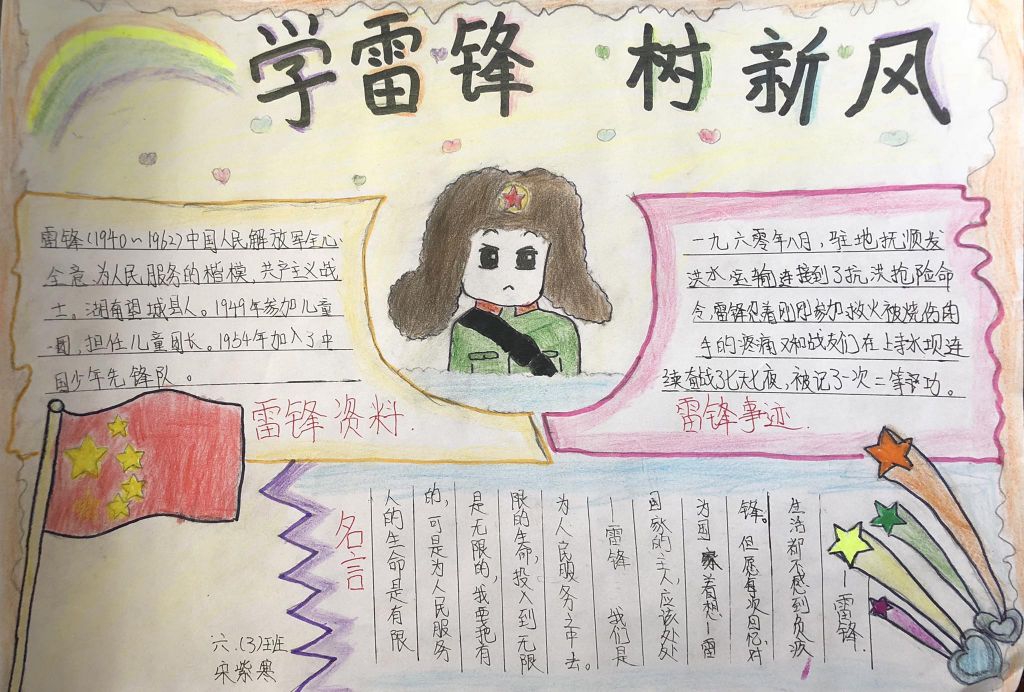 学雷锋 树新风
雷锋(1940~1962)中国人民解放军全心
全意为人民服务的楷模,共产主义战
士。湖南望城县人。1949年参加儿童
团,担任儿童团长。1954年加入了中
国少年先锋队。
雷锋资料.
一九六零年八月,驻地抚顺发
洪水运输连接到了抗洪抢险命
令,雷锋忍着刚刚参加救火被烧伤的
手的疼痛又和战友们在上寺水坝连
续奋战了七天七夜,被记了一次二等功。
雷锋事迹.
名言
人的生命是有限
的,可是为人民服务
是无限的,我要把有
限的生命,投入到无限
为人民服务之中去。
—雷锋 我们是
国家的主人,应该处处
为国家着想—雷
锋。但愿每次回忆,对
生活都不感到负疚
—雷锋.
六.(3)班
宋紫